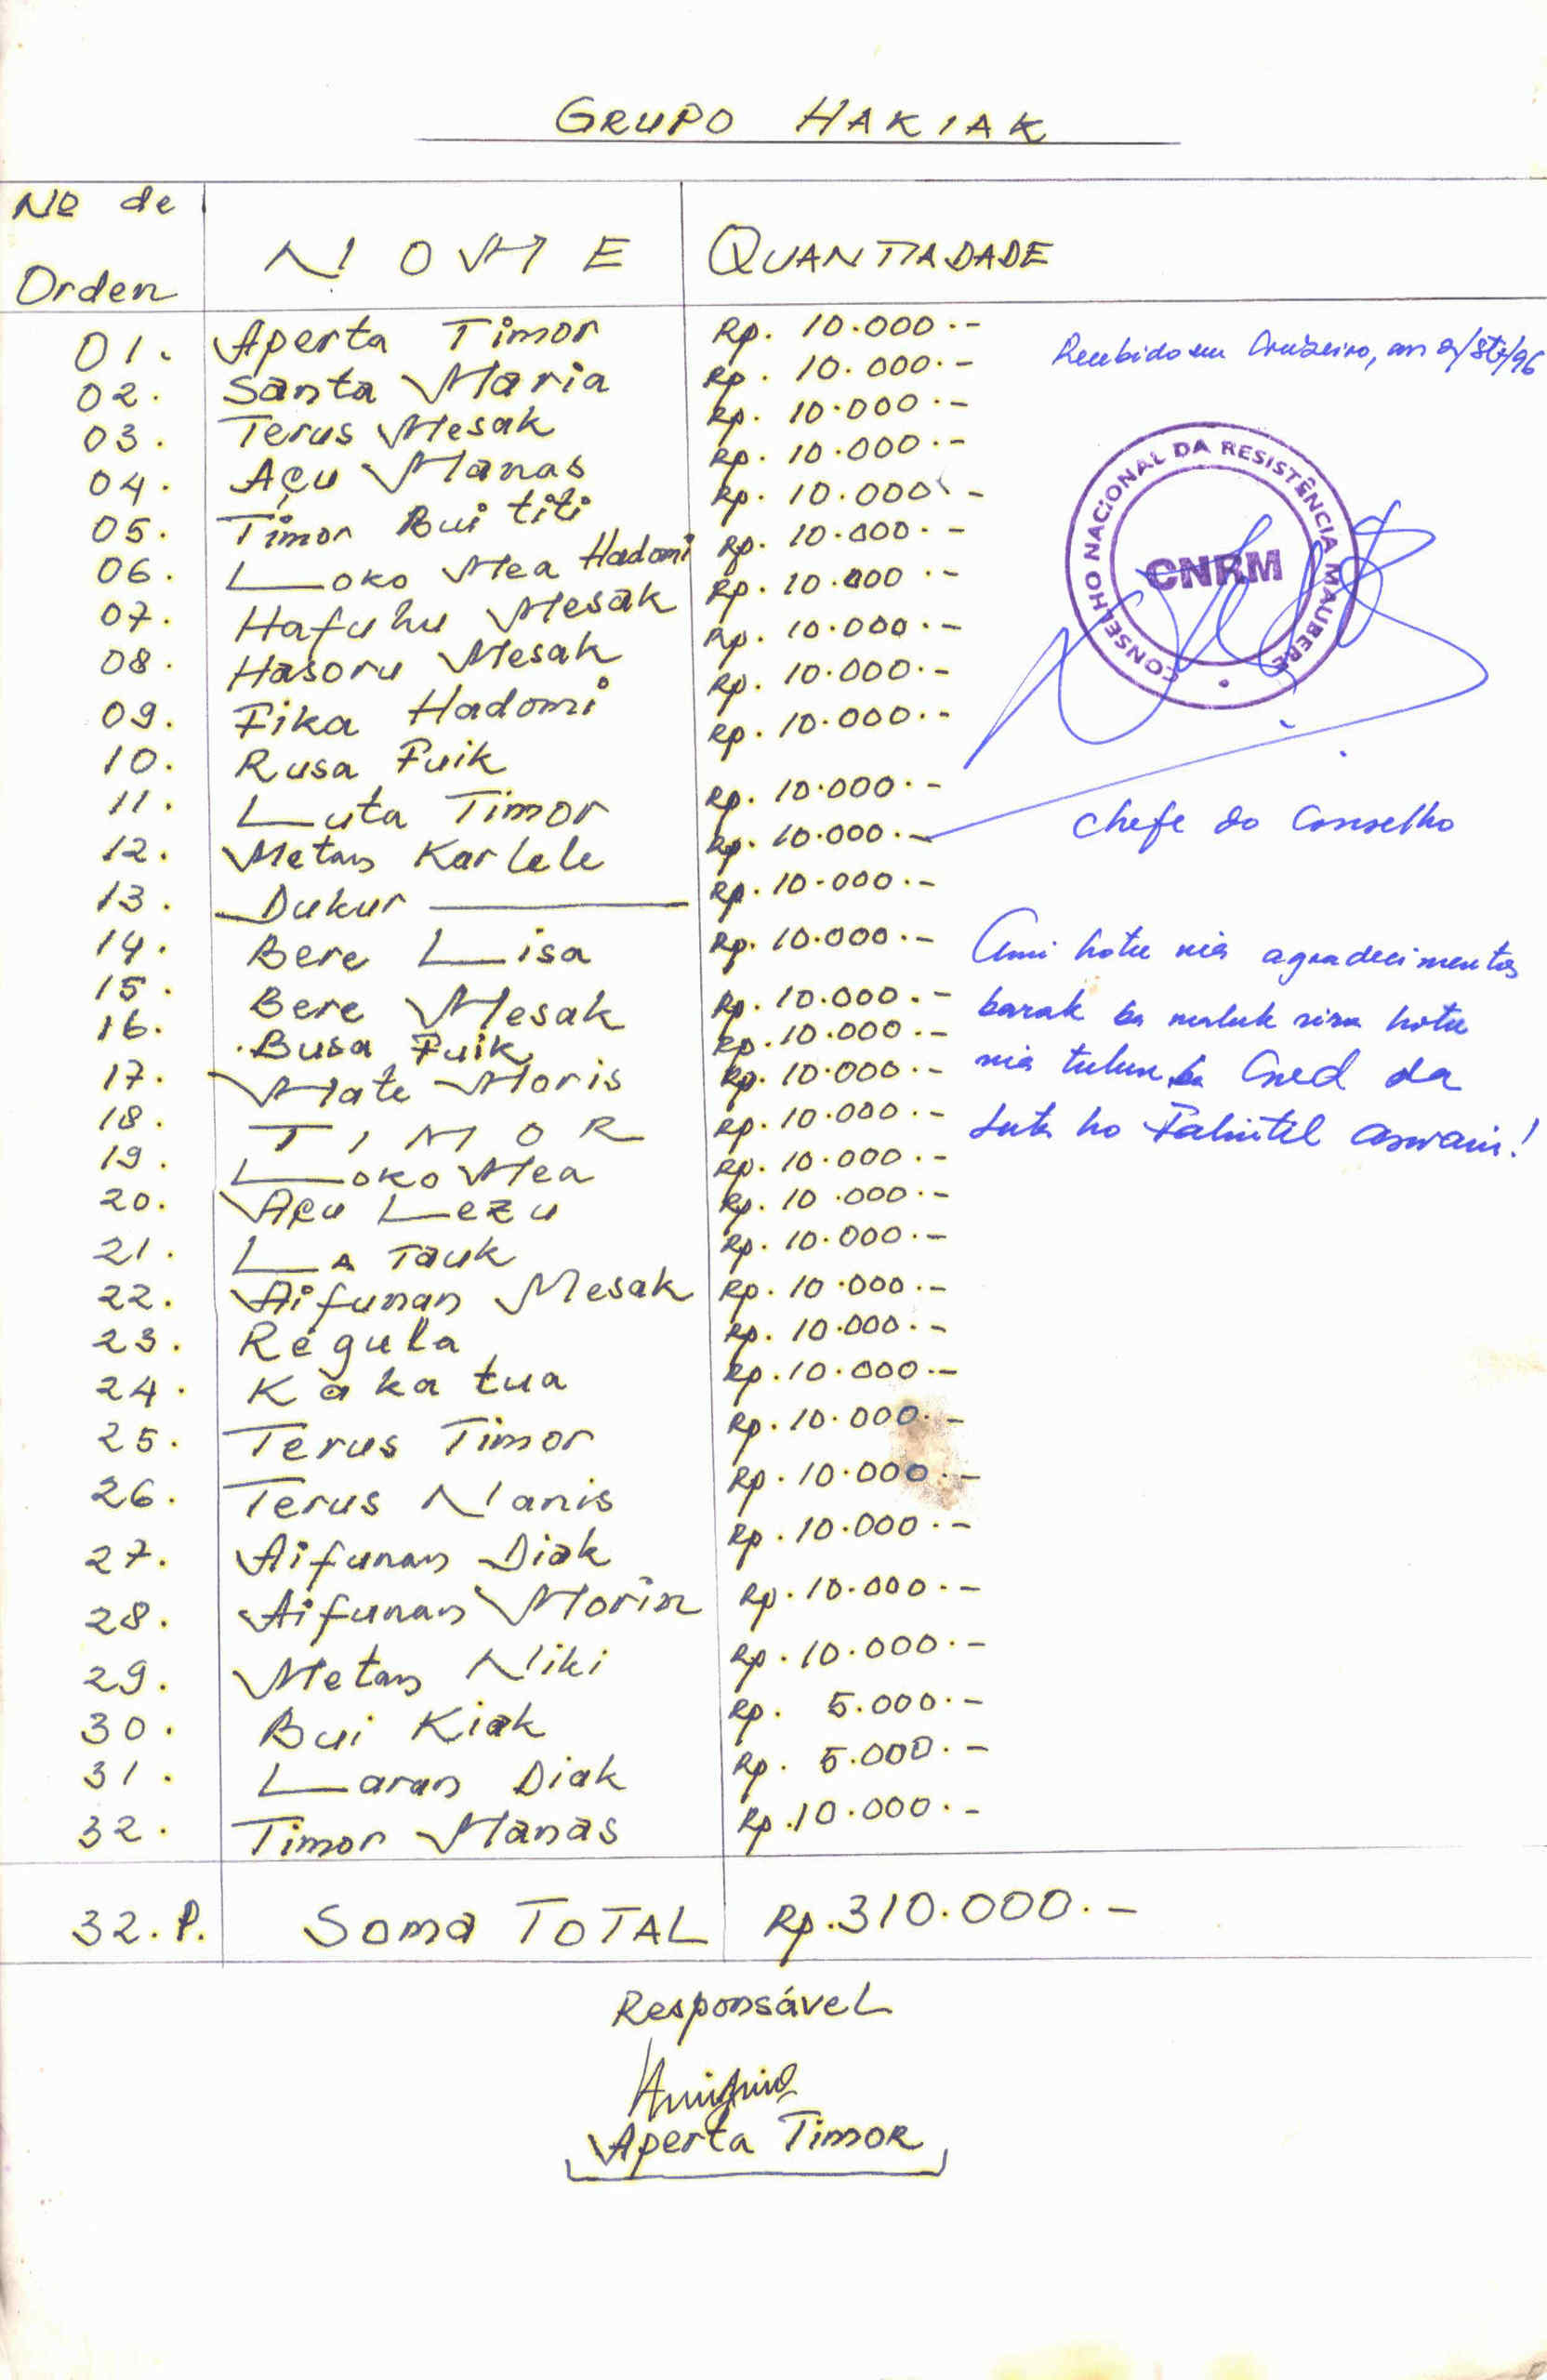 GRUPO HAKIAK
Nº de Orden NOME QUANTIADADE
01. Aperta Timor Rp. 10.000.-
02. Santa Maria Rp. 10.000.-
03. Terus Mesak Rp. 10.000.-
04. Açu Manas Rp. 10.000.-
05. Timor Bui titi Rp. 10.000.-
06. Loko Mea Hadomi Rp. 10.000.-
07. Hafuhu Mesak Rp. 10.000.-
08. Hasoru Mesak Rp. 10.000.-
09. Fika Hadomi Rp. 10.000.-
10. Rusa Fuik Rp. 10.000.-
11. Luta Timor Rp. 10.000.-
12. Metan Karlele Rp. 10.000.-
13. Dukur Rp. 10.000.-
14. Bere Lisa Rp. 10.000.-
15. Bere Mesak Rp. 10.000.-
16. Busa Fuik Rp. 10.000.-
17. Mate Moris Rp. 10.000.-
18. TIMOR Rp. 10.000.-
19. Loko Mea Rp. 10.000.-
20. Açu Lezu Rp. 10.000.-
21. La Tauk Rp. 10.000.-
22. Aifunan Mesak Rp. 10.000.-
23. Régula Rp. 10.000.-
24. Kaka tua Rp. 10.000.-
25. Terus Timor Rp. 10.000.-
26. Terus Nanis Rp. 10.000.-
27. Aifunan Diak Rp. 10.000.-
28. Aifunan Morin Rp. 10.000.-
29. Metan Niki Rp. 10.000.-
30. Bui Kiak Rp. 5.000.-
31. Laran Diak Rp. 5.000.-
32. Timor Manas Rp. 10.000.-
32. P. Soma TOTAL Rp. 310.000.-
Responsável
Aperta Timor
Recebido em Cruzeiro, aos 2/Set/96
CONSELHO NACIONAL DA RESISTÊNCIA MAUBERE
CNRM
Chefe do Conselho
Ami hotu nia agradecimentos
barak ba maluk sira hotu
nia tulun ba Cned da
Luta ho Falintil aswain!